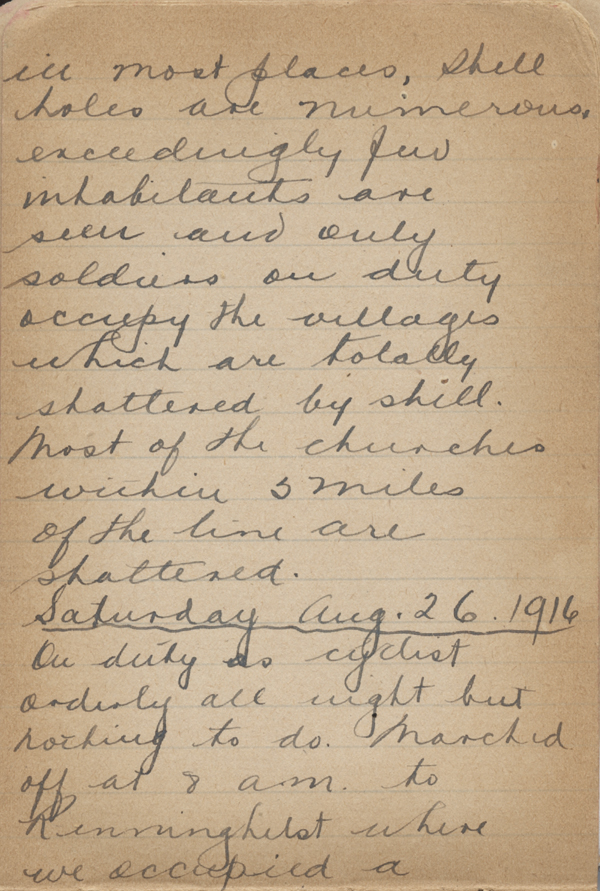 in most places, Shell
holes are numerous,
exceedingly few
inhabitants are
seen and only
soldiers on duty
occupy the villages
which are totally
shattered by shell.
Most of the churches
within 5 miles
of the line are
shattered.
Saturday Aug. 26. 1916
On duty as cyclist
orderly all night but
nothing to do. Marched
off at 8 a.m. to
Renninghelst where
we occupied a